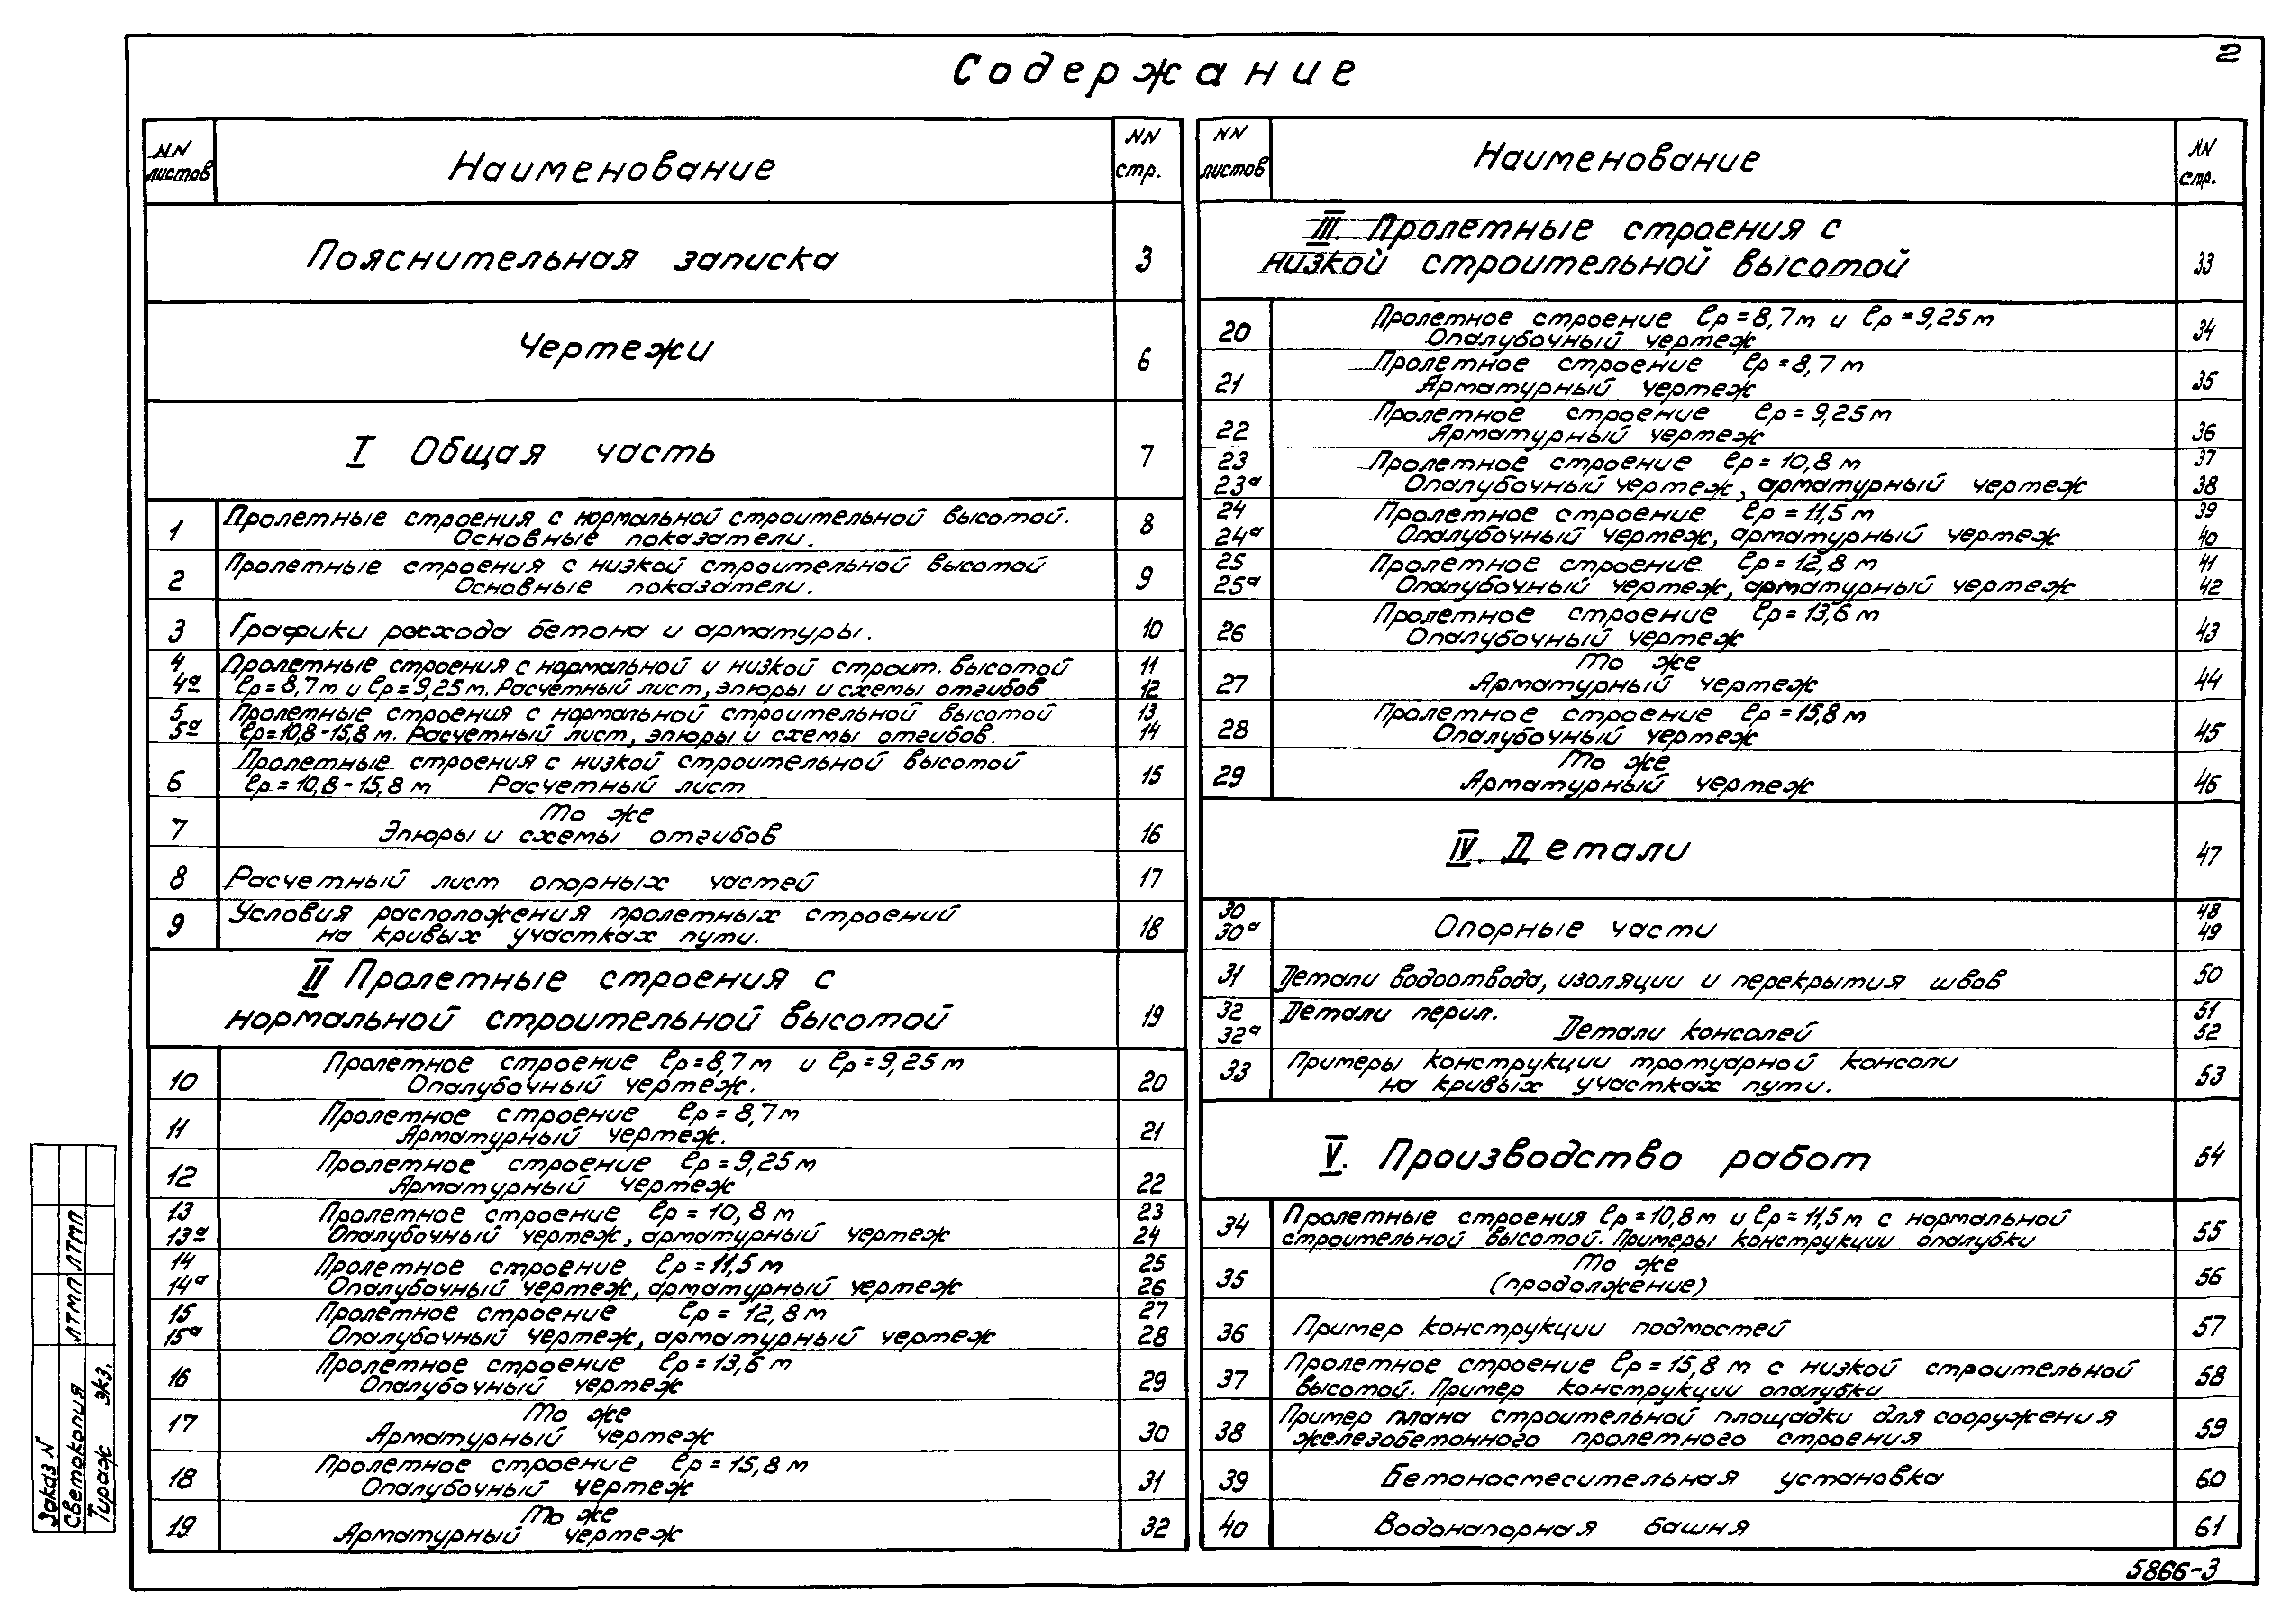 2
Содержание
NN листов
Наименование
NN стр.
Пояснительная записка 3
Чертежи 6
I Общая часть 7
1 Пролетные строения с нормальной строительной высотой. 8
Основные показатели.
2 Пролетные строения с низкой строительной высотой 9
Основные показатели.
3 Графики расхода бетона и арматуры. 10
4 Пролетные строения с нормальной и низкой строит. высотой 11
4а ℓр=8,7м и ℓр=9,25м. Расчетный лист, эпюры и схемы отгибов 12
5 Пролетные строения с нормальной строительной высотой 13
5а ℓр=10,8-15,8 м. Расчетный лист, эпюры и схемы отгибов. 14
6 Пролетные строения с низкой строительной высотой 15
ℓр=10,8-15,8 м Расчетный лист
7 То же 16
Эпюры и схемы отгибов
8 Расчетный лист опорных частей 17
9 Условия расположения пролетных строений 18
на кривых участках пути.
II Пролетные строения с
нормальной строительной высотой 19
10 Пролетное строение ℓр=8,7м и ℓр=9,25м 20
Опалубочный чертеж.
11 Пролетное строение ℓр=8,7м 21
Арматурный чертеж.
12 Пролетное строение ℓр=9,25м 22
Арматурный чертеж
13 Пролетное строение ℓр=10,8м 23
13а Опалубочный чертеж, арматурный чертеж 24
14 Пролетное строение ℓр=11,5м 25
14а Опалубочный чертеж, арматурный чертеж 26
15 Пролетное строение ℓр=12,8м 27
15а Опалубочный чертеж, арматурный чертеж 28
16 Пролетное строение ℓр=13,6м 29
Опалубочный чертеж
17 То же 30
Арматурный чертеж
18 Пролетное строение ℓр=15,8м 31
Опалубочный чертеж
19 То же 32
Арматурный чертеж
NN листов
Наименование
NN стр.
III. Пролетные строения с
низкой строительной высотой 33
20 Пролетное строение ℓр=8,7м и ℓр=9,25м 34
Опалубочный чертеж
21 Пролетное строение ℓр=8,7м 35
Арматурный чертеж
22 Пролетное строение ℓр=9,25м 36
Арматурный чертеж
23 Пролетное строение ℓр=10,8м 37
23а Опалубочный чертеж, арматурный чертеж 38
24 Пролетное строение ℓр=11,5м 39
24а Опалубочный чертеж, арматурный чертеж 40
25 Пролетное строение ℓр=12,8м 41
25а Опалубочный чертеж, арматурный чертеж 42
26 Пролетное строение ℓр=13,6м 43
Опалубочный чертеж
27 То же 44
Арматурный чертеж
28 Пролетное строение ℓр=15,8м 45
Опалубочный чертеж
29 То же 46
Арматурный чертеж
IV. Детали 47
30 48
30а Опорные части 49
31 Детали водоотвода, изоляции и перекрытия швов 50
32 Детали перил. 51
32а Детали консолей 52
33 Примеры конструкции тротуарной консоли 53
на кривых участках пути.
V. Производство работ 54
34 Пролетные строения ℓр=10,8м и ℓр=11,5м с нормальной 55
строительной высотой. Примеры конструкции опалубки
35 То же 56
(продолжение)
36 Пример конструкции подмостей 57
37 Пролетное строение ℓр=15,8м с низкой строительной 58
высотой. Пример конструкции опалубки
38 Пример плана строительной площадки для сооружения 59
железобетонного пролетного строения
39 Бетоносмесительная установка 60
40 Водонапорная башня 61
5866-3
Заказ N
Светокопия ЛТМП
Тираж экз. ЛТМП